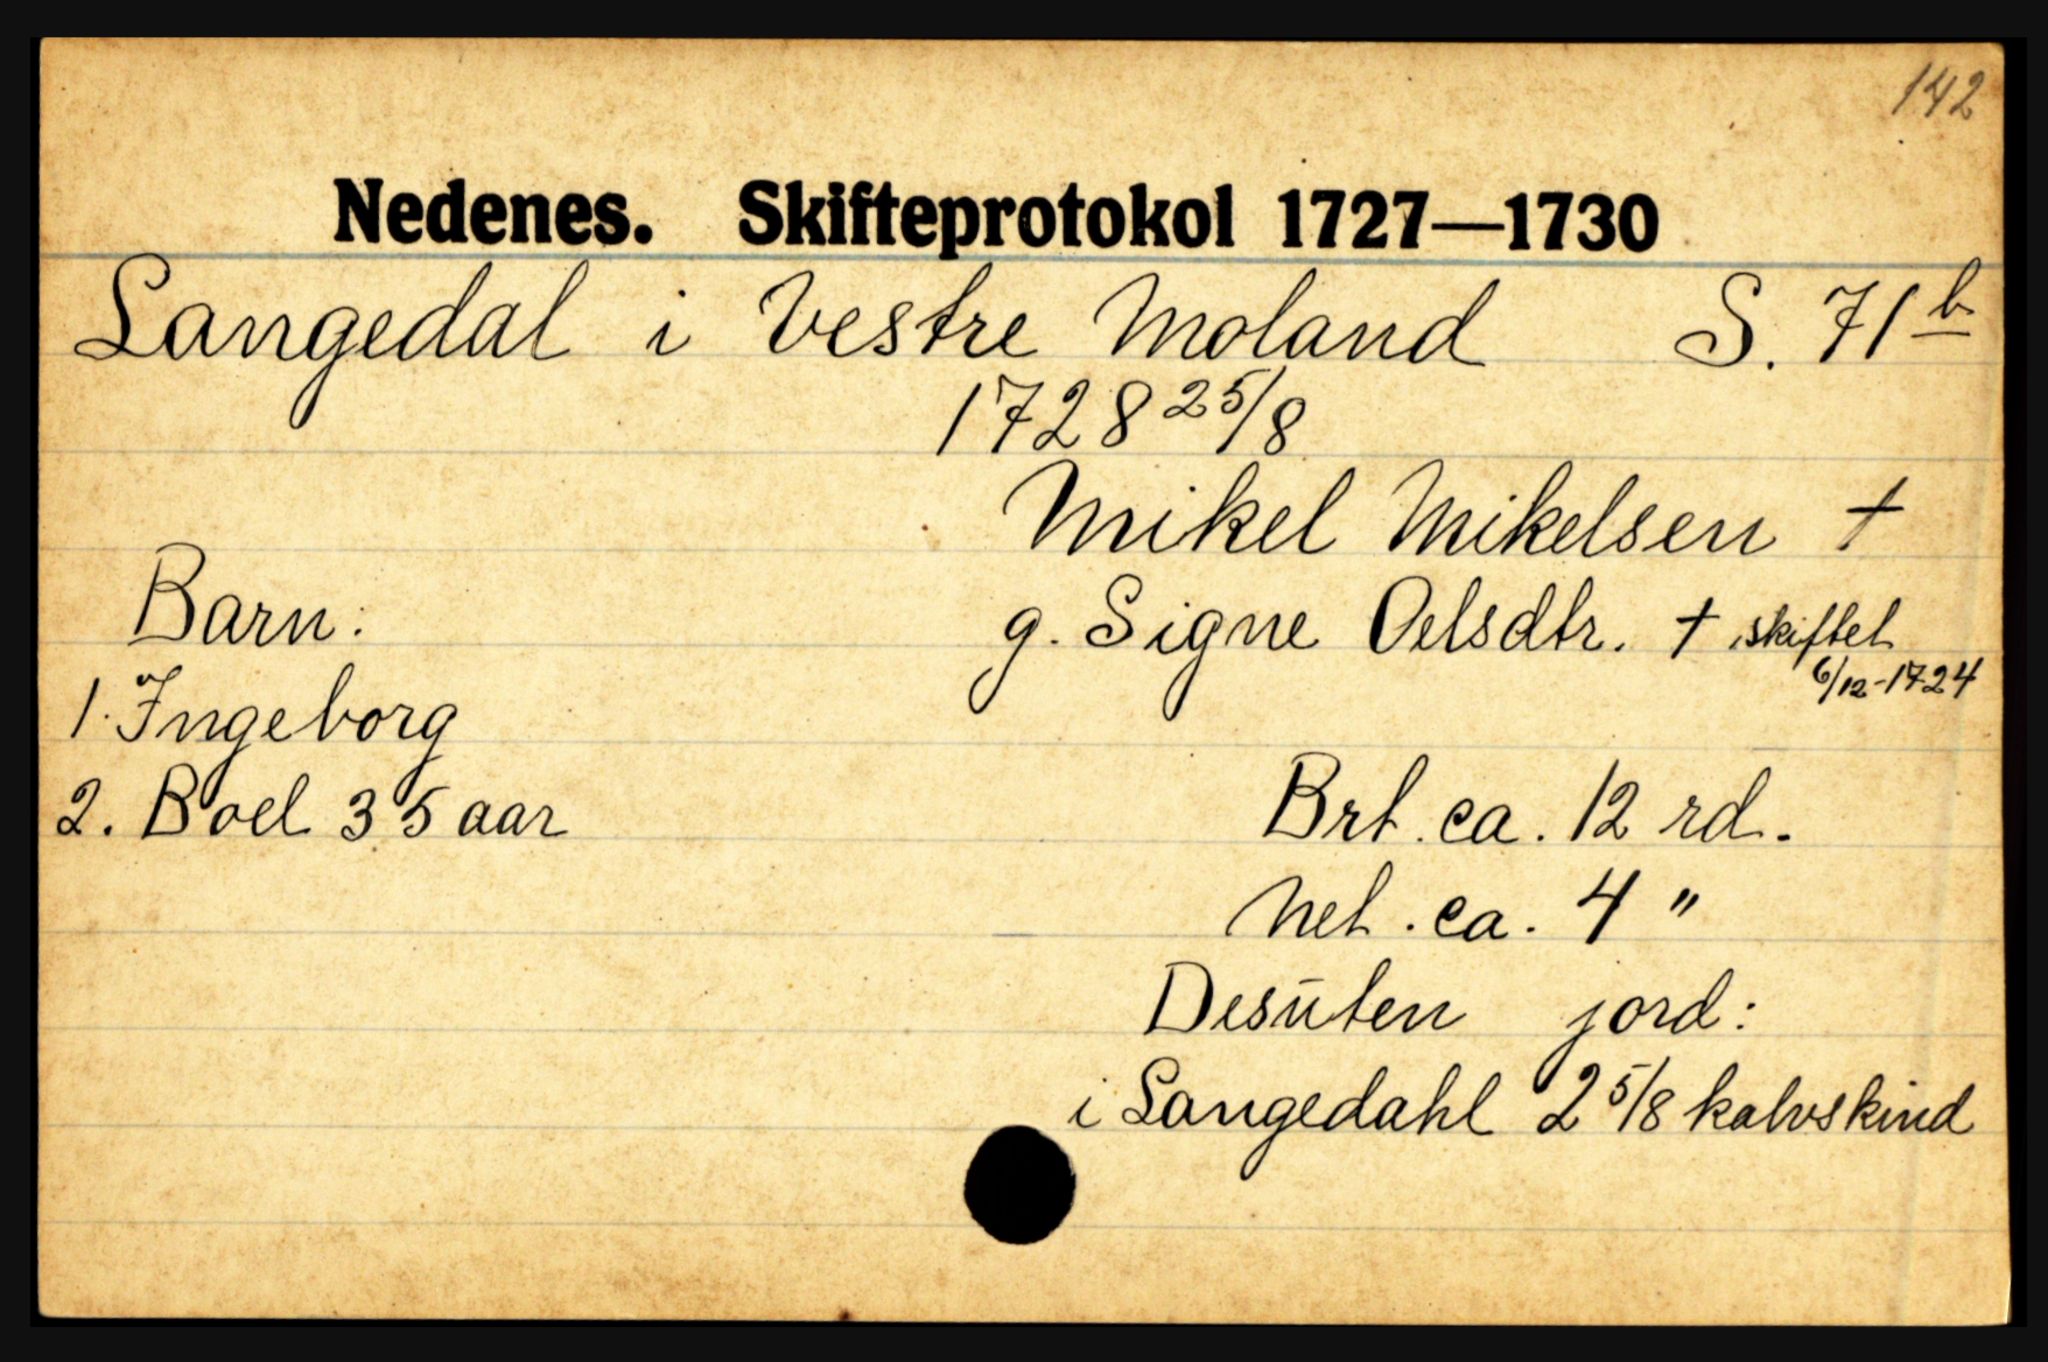 142
Nedenes. Skifteprotokol 1727—1730
Langedal i Vestre Moland S. 71 b
1728 25/8
Mikel Mikelsen †
Barn: g. Signe Oelsdtr. † skiftet
6/12-1724
1. Ingeborg
2. Boel 35 aar Brt. ca. 12 rd.
Net. ca. 4 "
Desuten jord:
i Langedahl 2 5/8 kalvskind